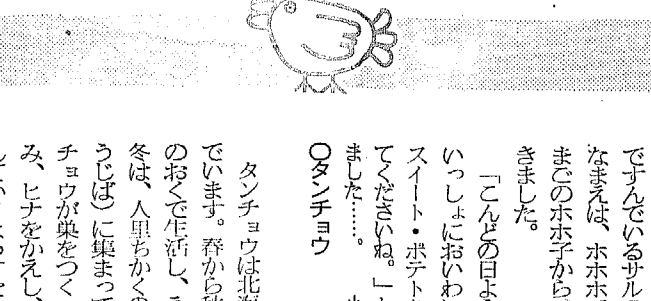 ですんでいるサル
なまえは、ホホホ
まごのホホ子から
きました。
「こんどの日よ
いっしょにおいわい
スイート・ポテト
てくださいね。」
ました……。
〇タンチョウ
タンチョウは北海
でいます。春から秋
のおくで生活し、
冬は、人里ちかくの
うじば）に集まって
チョウが巣をつく
み、ヒナをかえし、